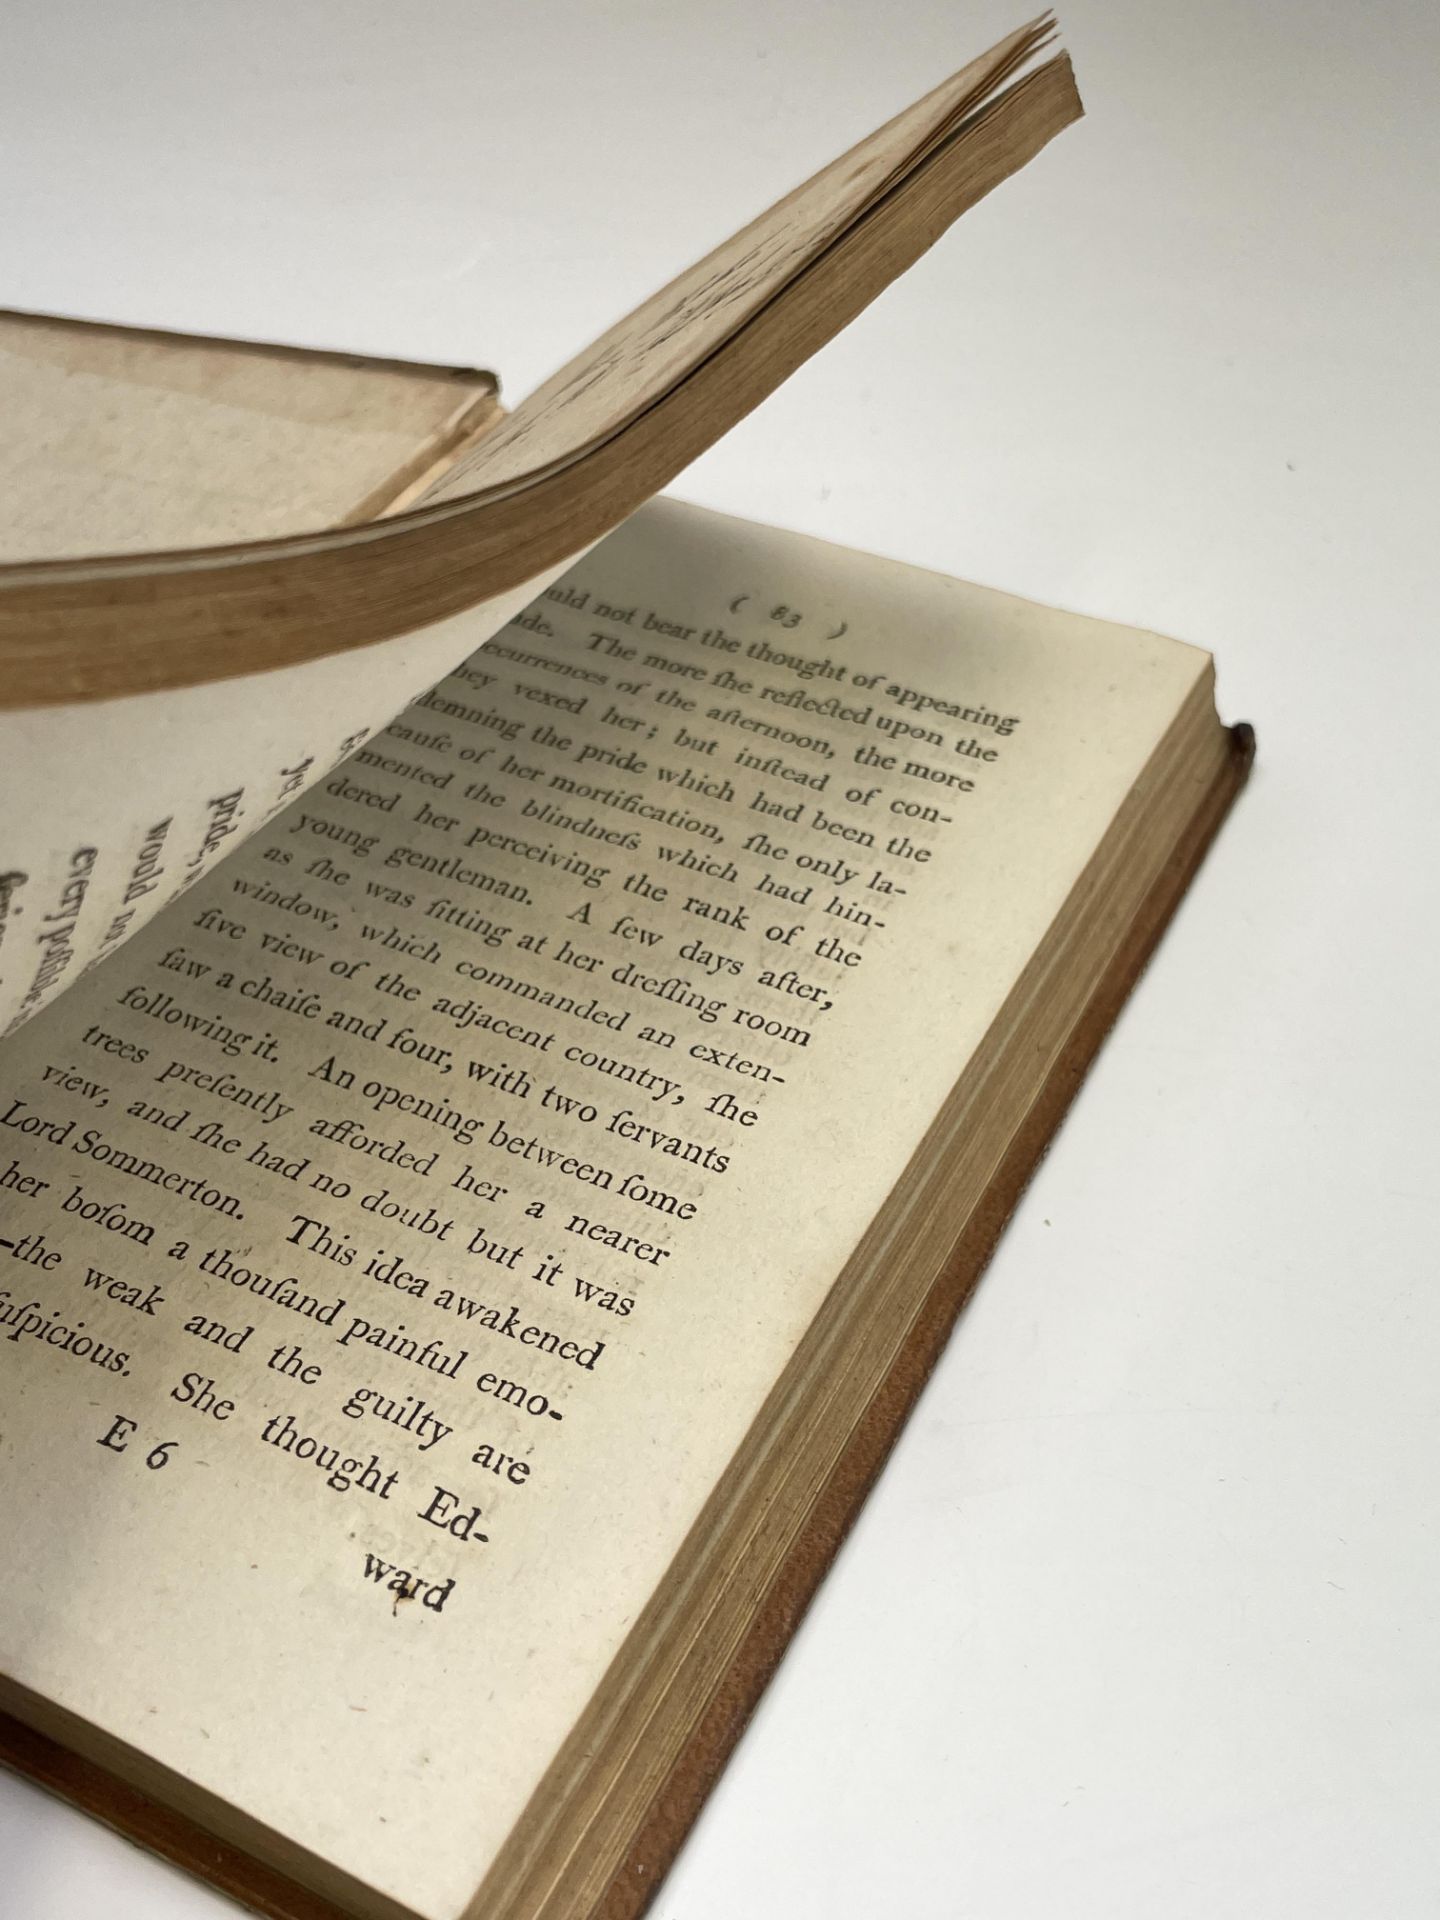 pride,
would
every possible
( 83 )
uld not bear the thought of appearing
ide. The more ſhe reflected upon the
ccurrences of the afternoon, the more
hey vexed her; but inſtead of con-
demning the pride which had been the
cauſe of her mortification, ſhe only la-
mented the blindneſs which had hin-
dered her perceiving the rank of the
young gentleman. A few days after,
as ſhe was ſitting at her dreſſing room
window, which commanded an exten-
ſive view of the adjacent country, ſhe
ſaw a chaiſe and four, with two ſervants
following it. An opening between ſome
trees preſently afforded her a nearer
view, and ſhe had no doubt but it was
Lord Sommerton. This idea awakened
her boſom a thouſand painful emo-
—the weak and the guilty are
ſuſpicious. She thought Ed-
E 6
ward